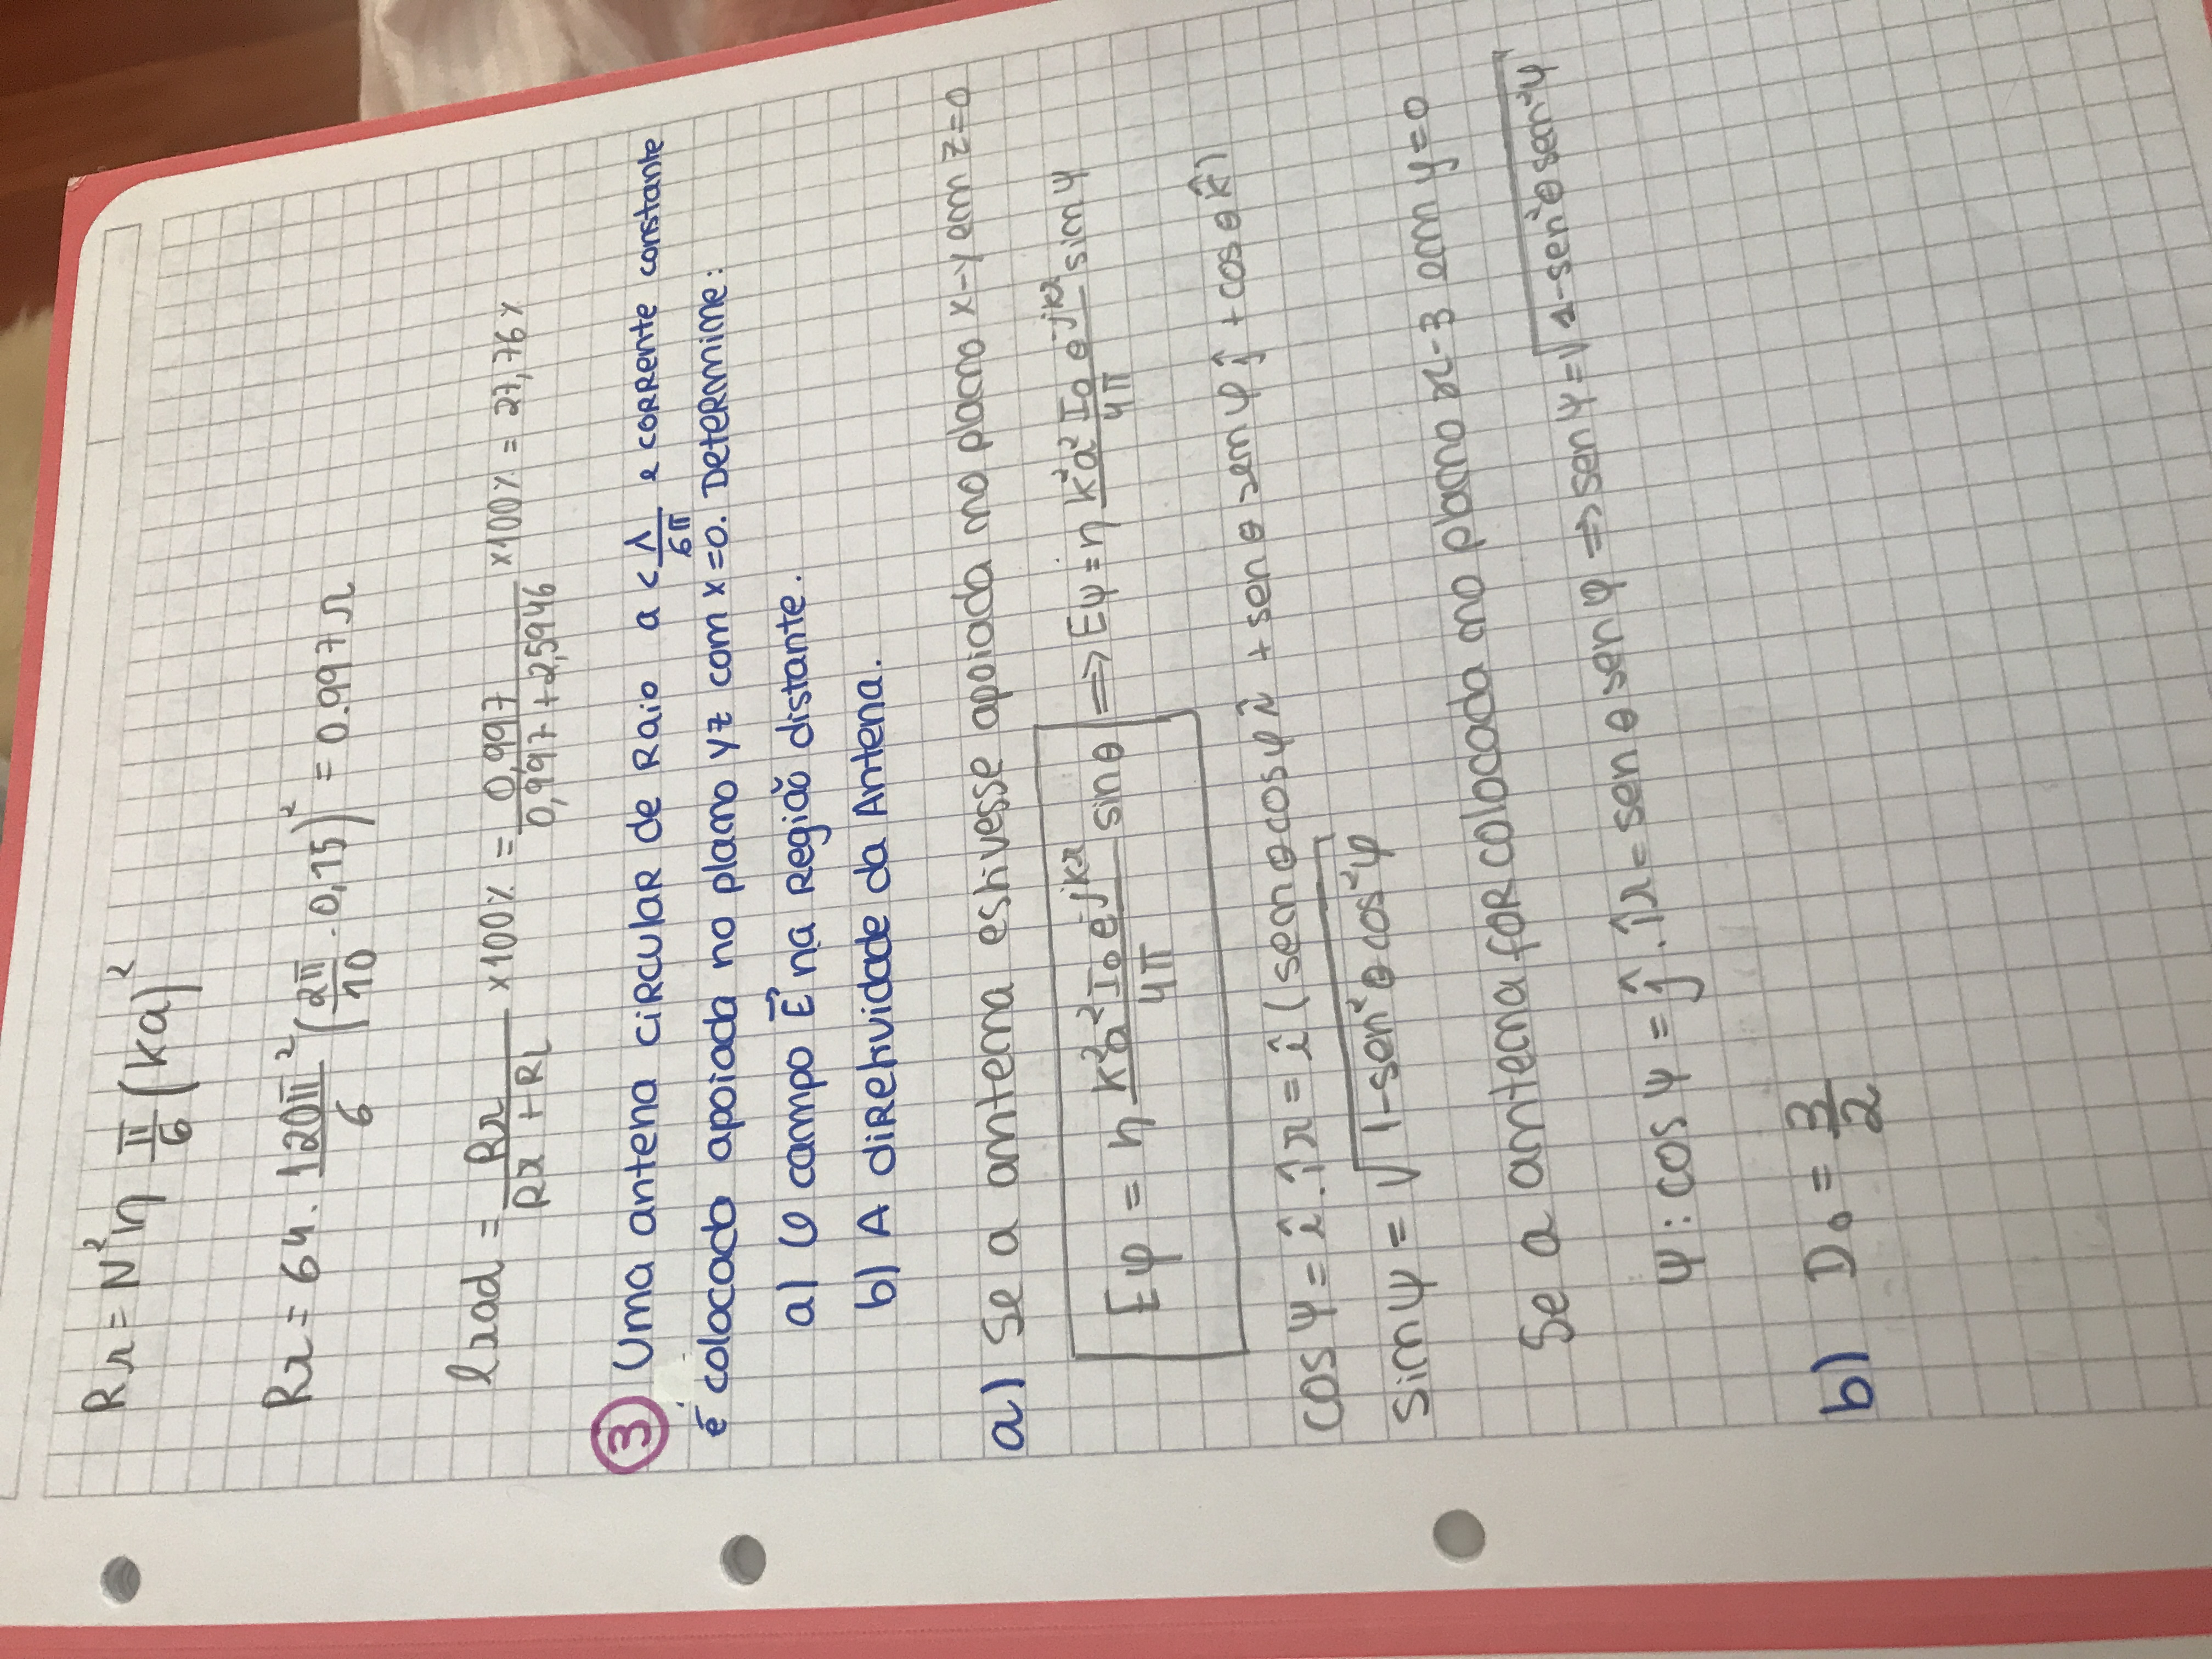 Rr = N²η π/6 (ka)²
Rr = 64 . 120π²/6 (2π/10 . 0,15)² = 0.997 Ω
erad = Rr/(Rr + RL) x100% = 0,997/(0,997+2,5946) x100% = 27,76%
3 Uma antena circular de raio a < λ/6π e corrente constante
é colocada apoiada no plano yz com x=0. Determine:
a) O campo E⃗ na região distante.
b) A diretividade da Antena.
a) Se a antena estivesse apoiada no plano x-y em z=0
Eφ = η k²a² I₀ e^-jkr/4π sinθ ⟹ Eψ = η k²a² I₀ e^-jkr/4π sin ψ
cos ψ = î . îr = î (sen θ cos φ î + sen θ sen φ ĵ + cos θ k̂)
sin ψ = √(1-sen²θ cos²φ)
Se a antena for colocada no plano x-z em y=0
ψ: cos ψ = ĵ . îr = sen θ sen φ ⟹ sen ψ = √(1-sen²θ sen²φ)
b) D₀ = 3/2